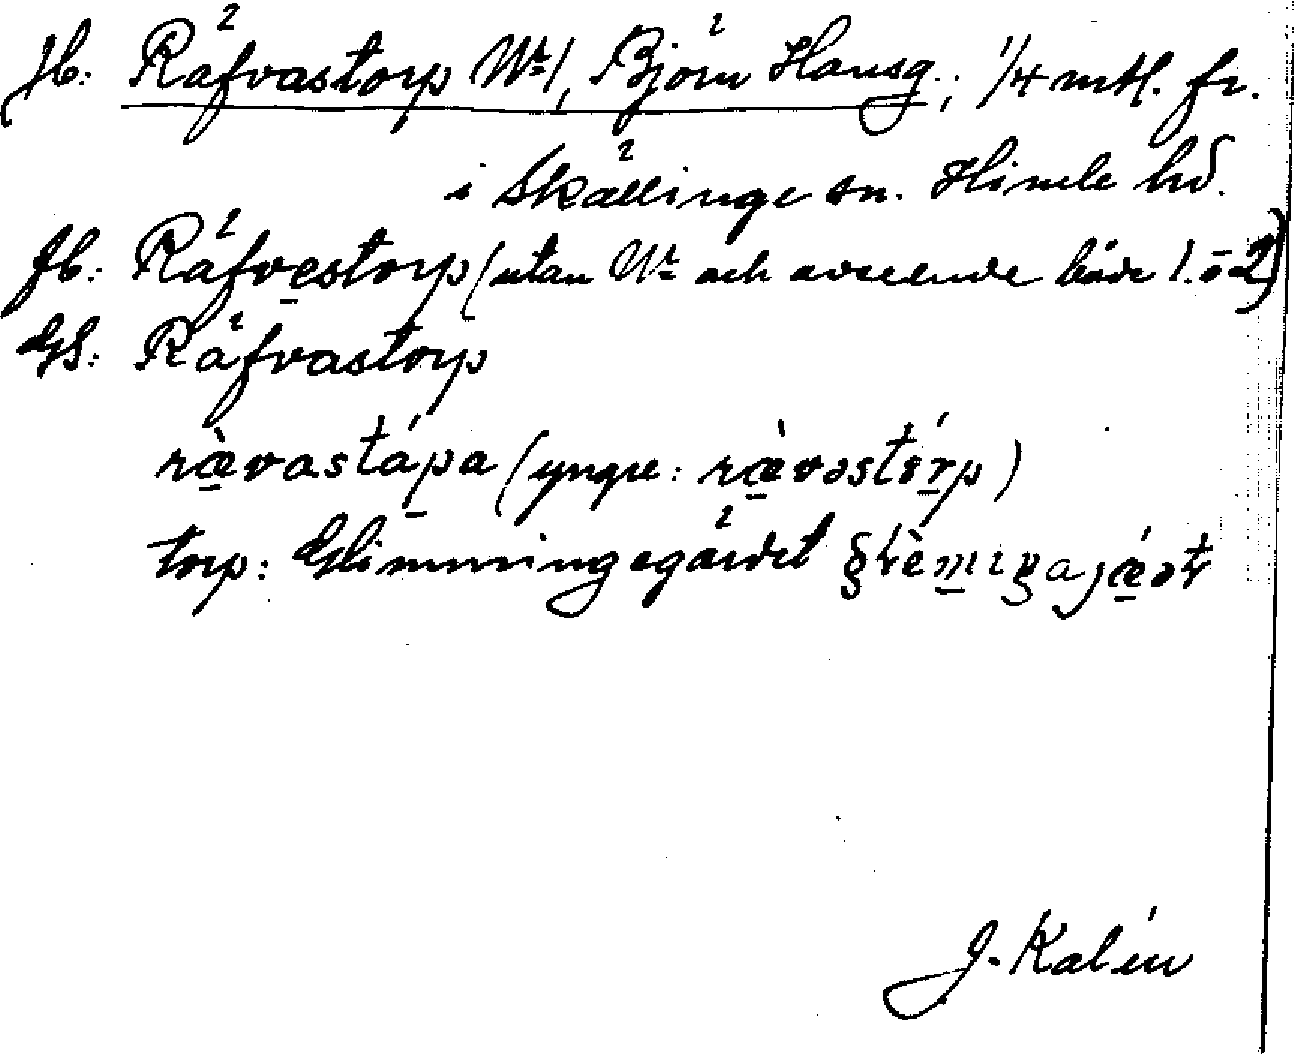 Jb: Räfvastorp Nr 1, Björn Hansg.; 1/4 mtl. fr.
i Skällinge sn. Himle hd.
Jb: Räfvestorp (utan Nr och avseende både 1. o 2)
GS: Räfvastorp
ræ̀vastápa (yngre: ræ̀vəstórp)
torp: Glimmingegärdet
J. Kalén